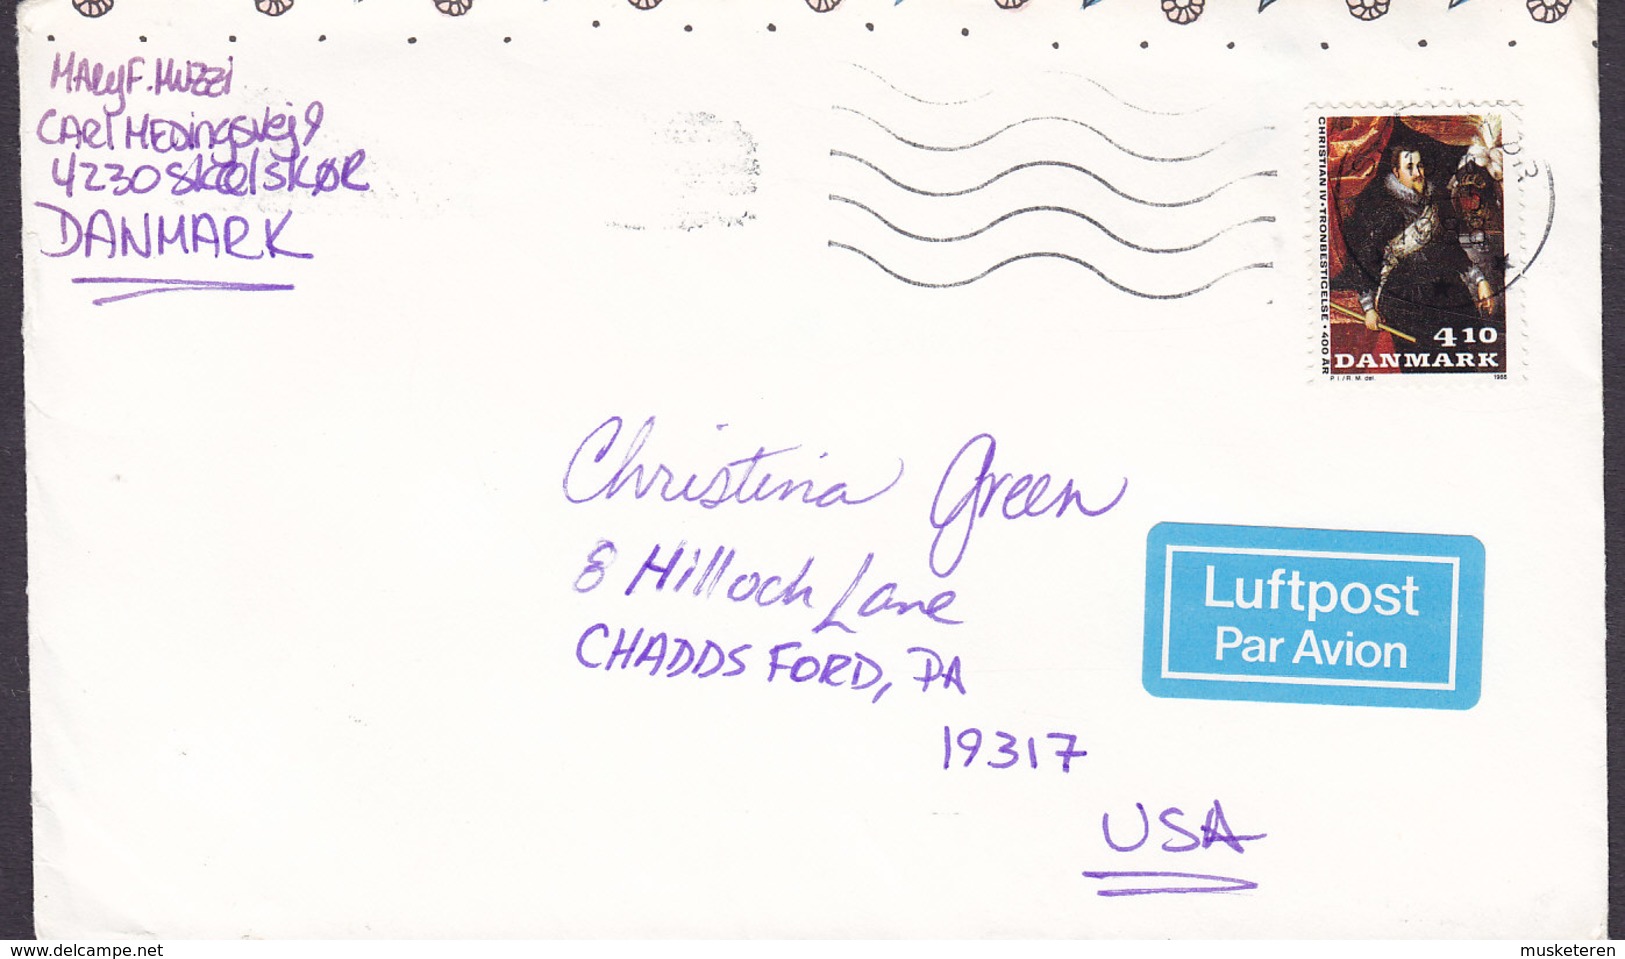 MARY F. MUZZI
CARL MEDINGSVEJ 9
4230 SKÆLSKØR
DANMARK
CHRISTIAN IV • TRONBESTIGELSE • 400 ÅR
4 10
DANMARK
P. I. / R. M. del.
1988
Christina Green
8 Hilloch Lane
CHADDS FORD, PA
19317
USA
Luftpost
Par Avion
www.delcampe.net
musketeren